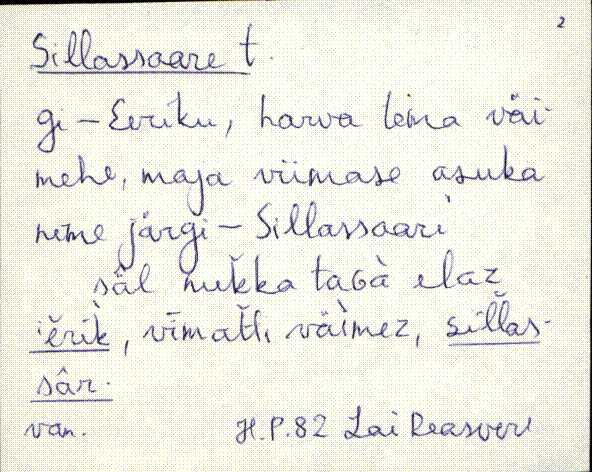 2
Sillassaare t.
gi – Eeriku, harva teina väi-
mehe, maja viimase asuka
nime järgi – Sillassaari
säl nukka tagà elaz
ìerìk, vīmati väìmez, sillas-
sâr.
van. H.P.82 Lai Reasvere